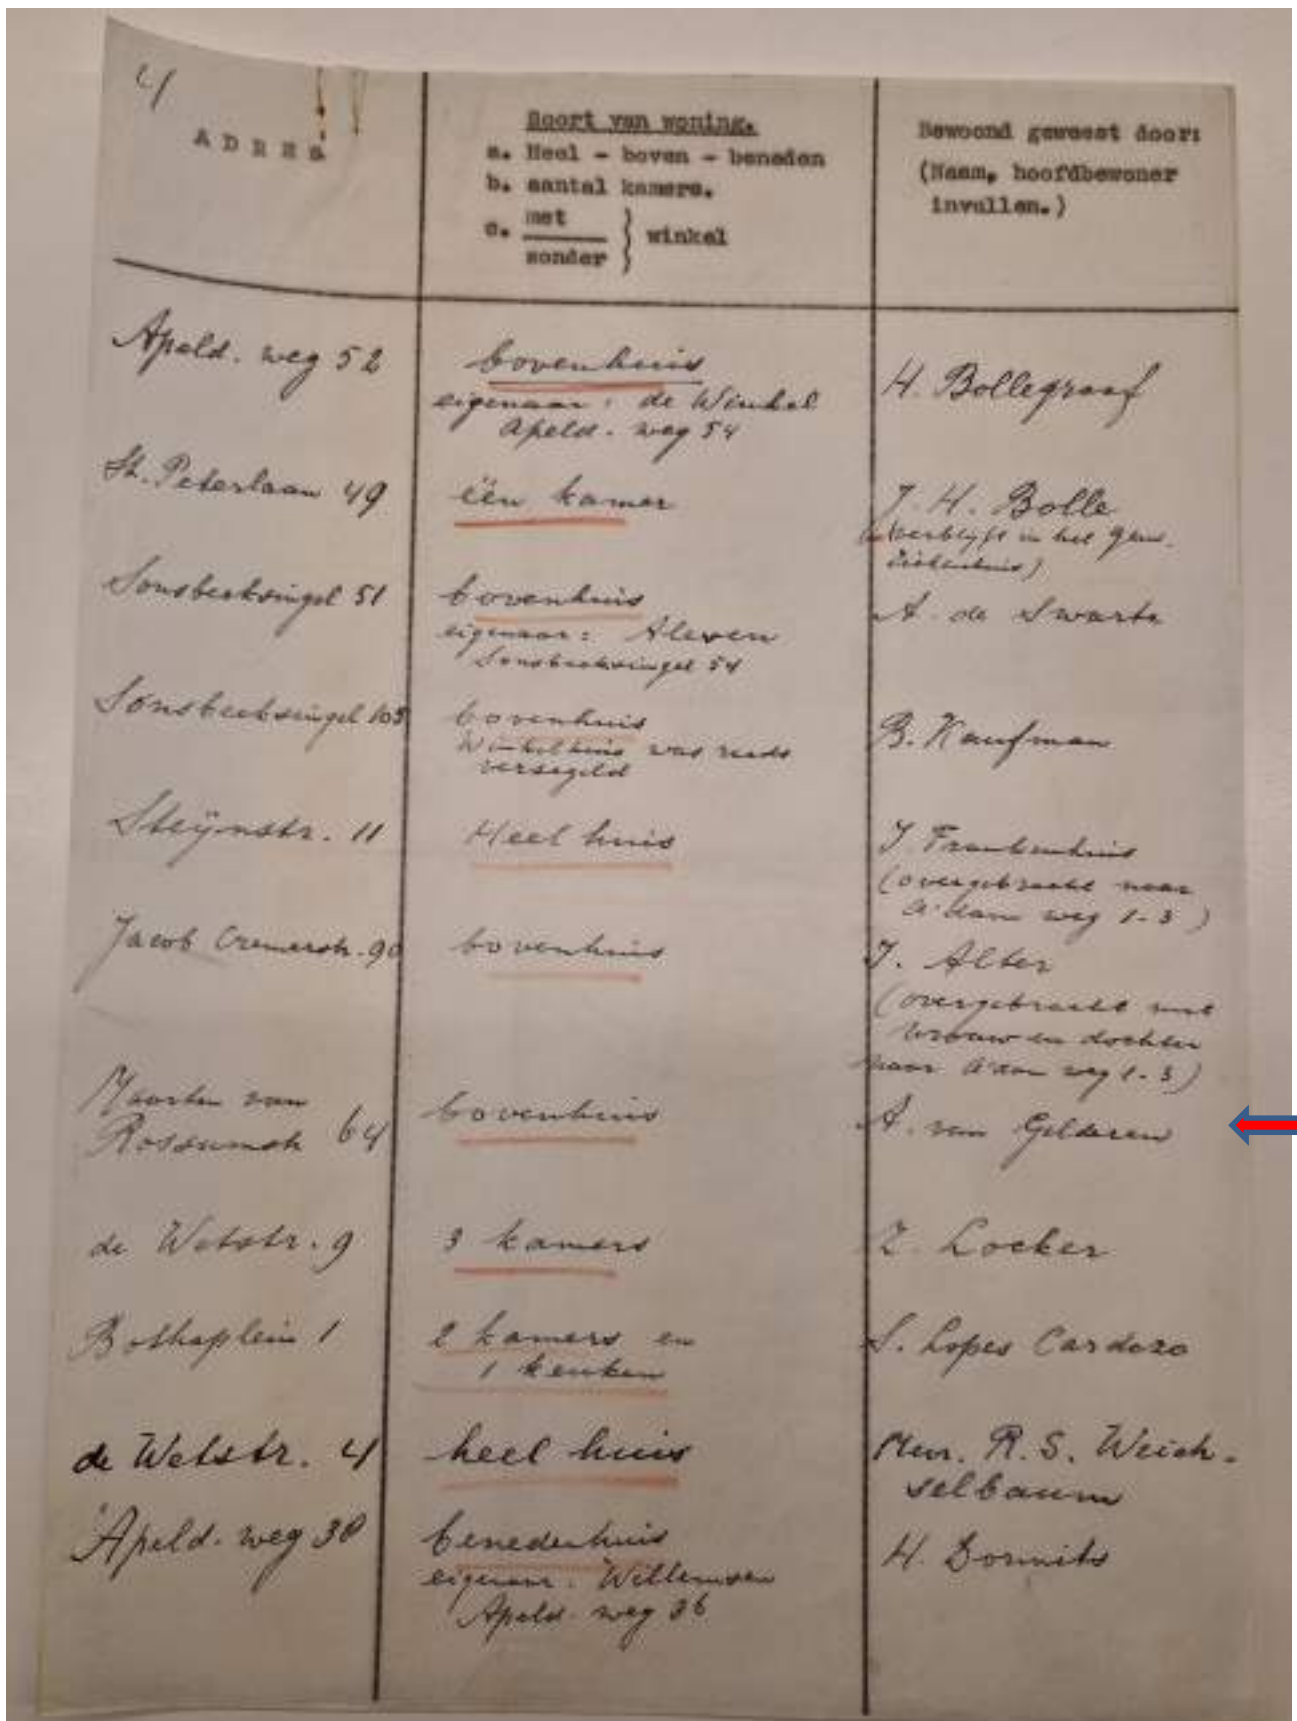 4
ADRES
Soort van woning.
a. Heel - boven - beneden
b. aantal kamers.
c. met
zonder } winkel
Bewoond geweest door:
(Naam, hoofdbewoner
invullen.)
Apeld. weg 52
bovenhuis
eigenaar: de Winkel
Apeld. weg 54
H. Bollegraaf
St. Peterlaan 49
één kamer
J. H. Bolle
(verblijft in het Gem.
Ziekenhuis)
Sonsbeeksingel 51
bovenhuis
eigenaar:
Sonsbeeksingel 54
A. de Swarte
Sonsbeeksingel 105
bovenhuis
Winkelhuis was reeds
verzegeld
B. Kaufman
Steÿnstr. 11
Heel huis
J Frankenhuis
(overgebracht naar
A'dam weg 1-3)
Jacob Cremerstr. 90
bovenhuis
J. Alter
(overgebracht met
vrouw en dochter
naar A'dam weg 1-3)
Maarten van
Rossumstr 64
bovenhuis
A. van Gelderen
de Wetstr. 9
3 kamers
Z. Locker
Bothaplein 1
2 kamers en
1 keuken
S. Lopes Cardozo
de Wetstr. 4
heel huis
Mevr. R. S. Weich-
selbaum
Apeld. weg 38
benedenhuis
eigenaar: Willemsen
Apeld. weg 36
H.